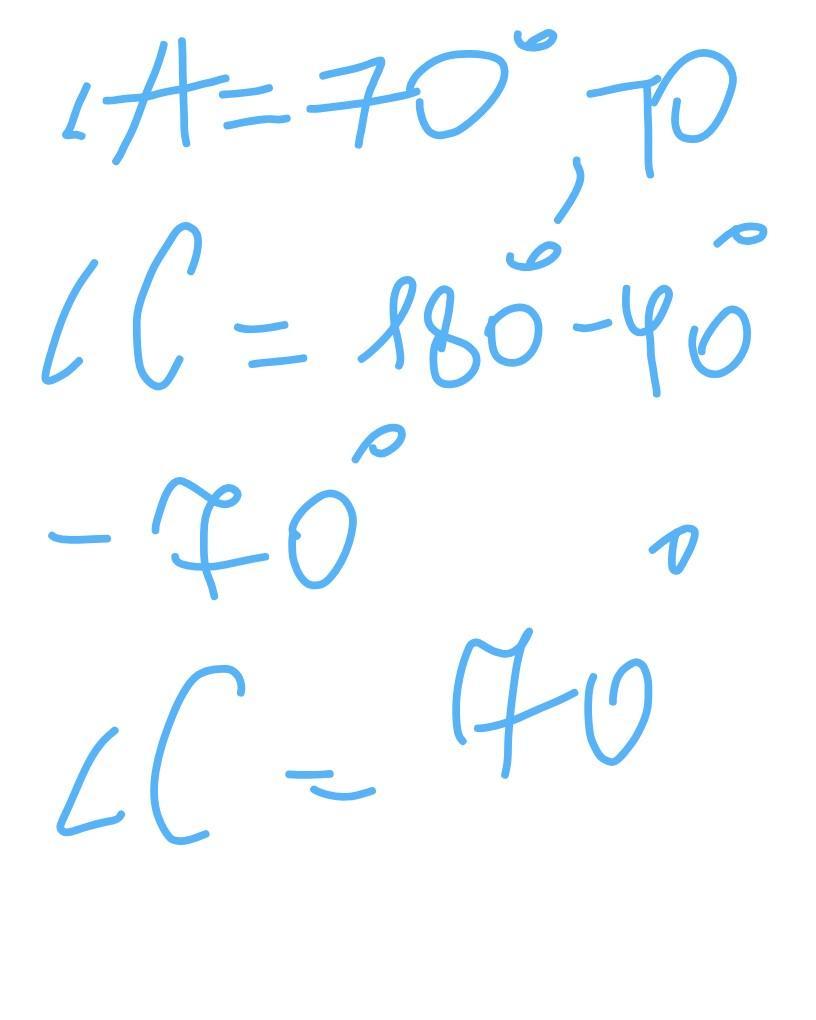 ∠A = 70°, то
∠C = 180° - 40°
- 70°
∠C = 70°